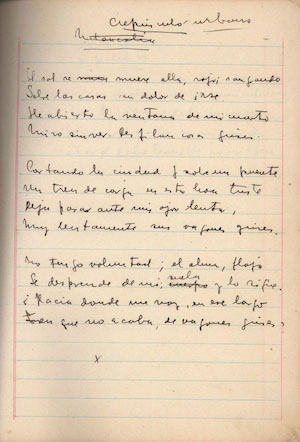 crepúsculo urbano
El sol se muere allá, rojo, sangrando
Sobre las casas su dolor de irse
He abierto la ventana de mi cuarto
Miro sin ver. Desfilan cosas grises.
Cortando la ciudad y sobre un puente
Un tren de carga en esta hora triste
Deja pasar ante mis ojos lenta,
Muy lentamente sus vagones grises.
No tengo voluntad; el alma, flojo
Se desprende de mi, cuerpo y lo sigo.
¿Hacia donde me voy, en ese largo
Tren que no acaba, de vagones grises
x